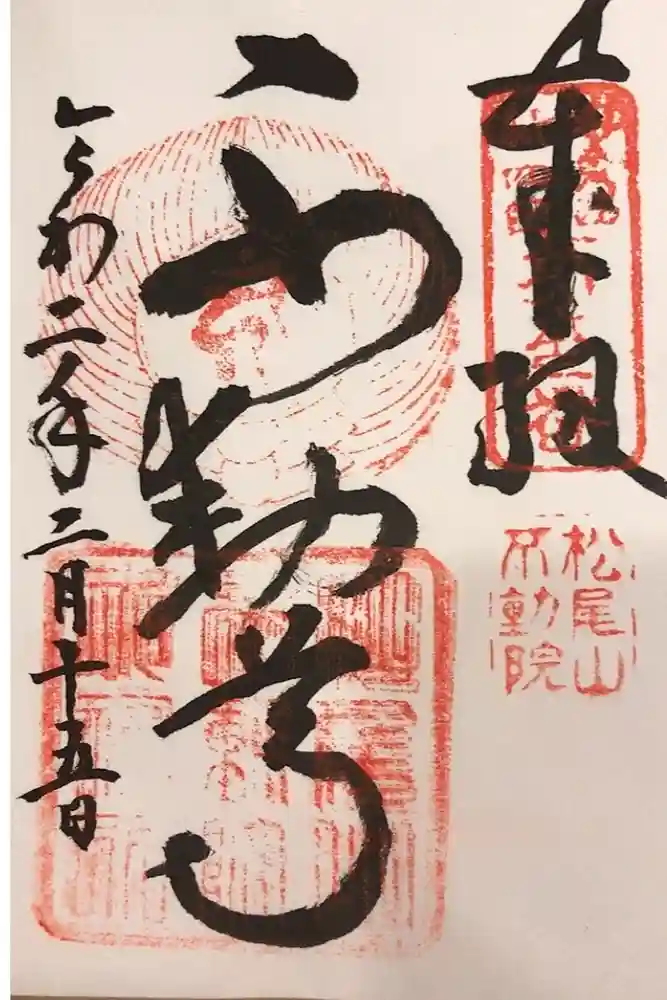 奉拝
松尾山
不動院
不動尊
令和二年二月十五日